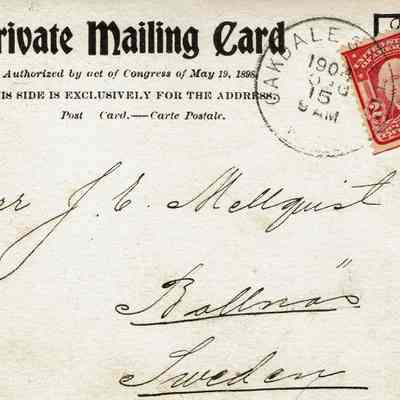 rivate Mailing Card
Authorized by act of Congress of May 19, 1898.
IS SIDE IS EXCLUSIVELY FOR THE ADDRESS.
Post Card.—Carte Postale.
OAKDALE
190
15
8 AM
2
rr J. E. Mellquist
Bollnäs
Sweden